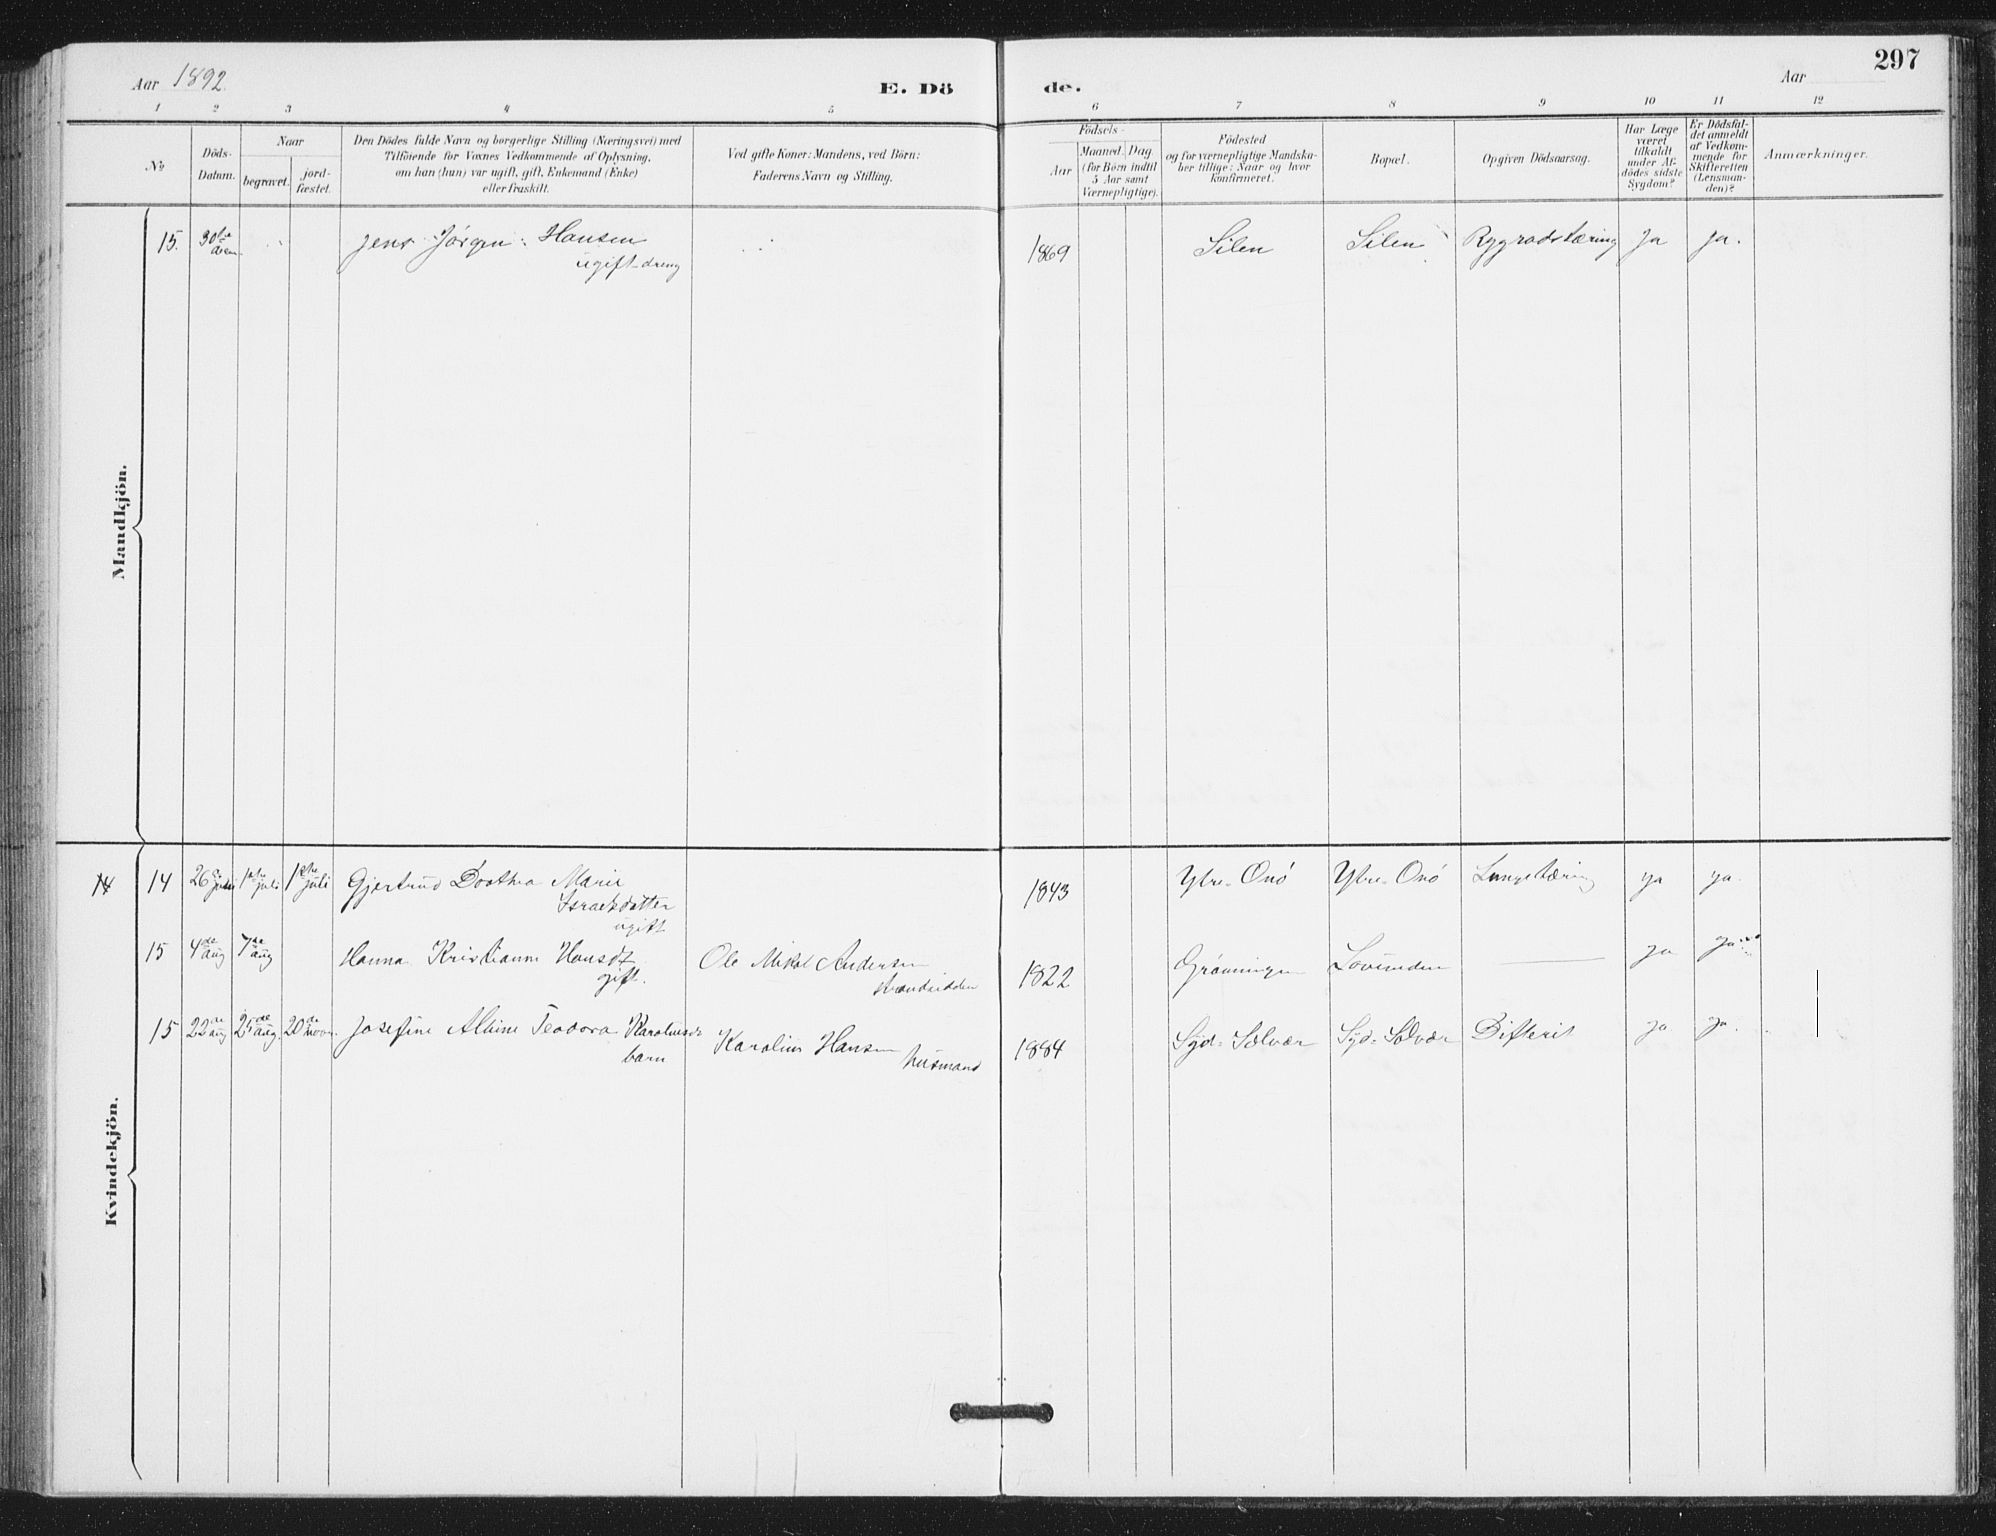 297
Aar 1892.
E. Dö
de.
Aar
1 2 3 4 5
6 7 8 9 10 11 12
No
Döds-
Datum.
Naar
begravet.
jord-
fæstet.
Den Dödes fulde Navn og borgerlige Stilling (Næringsvei) med
Tilföiende for Voxnes Vedkommende af Oplysning,
om han (hun) var ugift, gift, Enkemand (Enke)
eller fraskilt.
Ved gifte Koner: Mandens, ved Börn:
Faderens Navn og Stilling.
Födsels-
Aar
Maaned. Dag.
(for Börn indtil
5 Aar samt
Værnepligtige).
Födested
og for værnepligtige Mandska-
ber tillige: Naar og hvor
konfirmeret.
Bopæl.
Opgiven Dödsaarsag.
Har Læge
været
tilkaldt
under Af-
dödes sidste
Sygdom?
Er Dödsfal-
det anmeldt
af Vedkom-
mende for
Skifteretten
(Lensman-
den)?
Anmærkninger.
Mandkjön.
15. 30 Jens Jörgen Hansen 1869 Silen Silen Rygradstæring Ja Ja.
ugift dreng
Kvindekjön.
14 14 26 juni 1ste juli 1ste juli Gjertrud Dorthea Marie 1843 Ytre-Onö Ytre-Onö Lungetæring ja ja.
Israelsdatter
ugift
15 4de aug 7de aug Hanna Kristianne Hansdt Ole Mikal Andersen 1822 Grönningen Lovunden — ja ja
gift. strandsidder
15 22de aug 25de aug. 20de nov. Josefine Albine Teodora Karoliusdt Karolius Hansen 1884 Syd-Solvær Syd-Solvær Difterit ja ja.
barn husmand